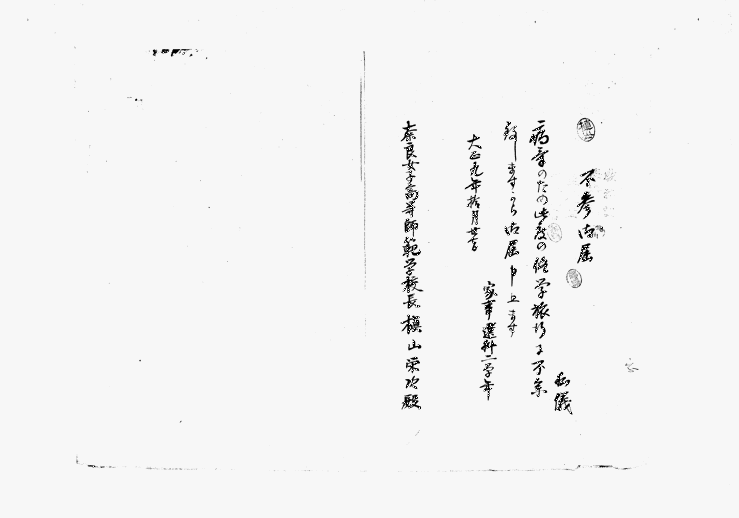 不参御届
私儀
病気のため此度の修学旅行に不参
致しますから御届申上ます
家事選科二学年
大正九年拾月廿二日
奈良女子高等師範学校長 槇山栄次殿